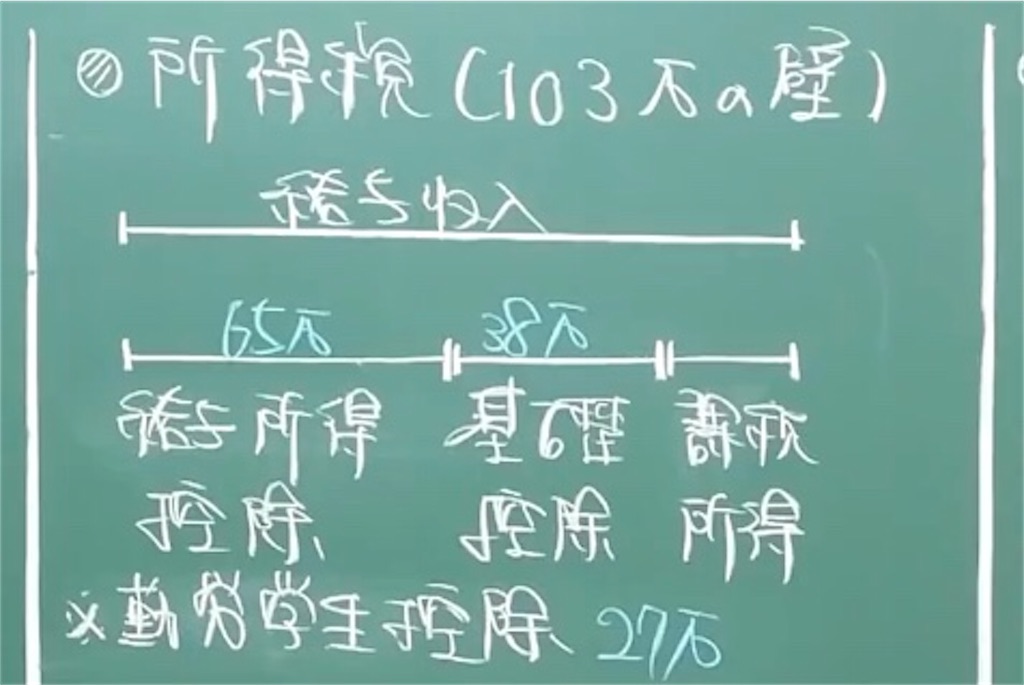 ◎所得税(103万の壁)
給与収入
65万 38万
給与所得 基礎 課税
控除 控除 所得
※勤労学生控除 27万